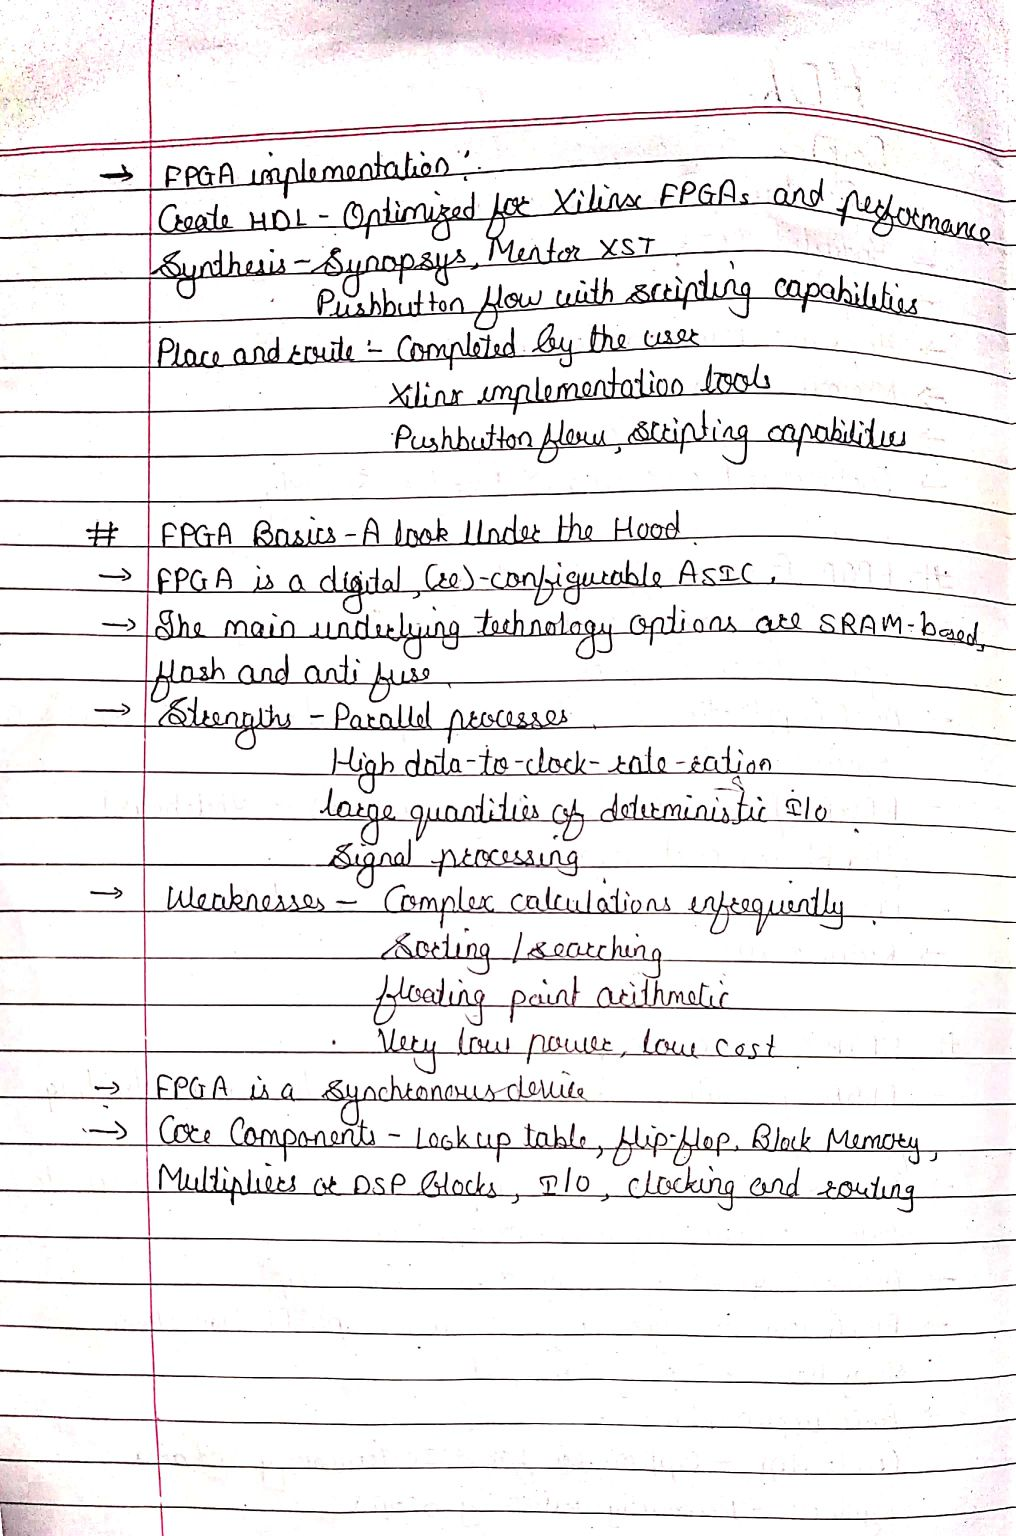 → FPGA implementation :-
Create HDL - Optimized for Xilinx FPGAs and performance
Synthesis - Synopsys, Mentor XST
Pushbutton flow with scripting capabilities
Place and route :- Completed by the user
Xilinx implementation tools
Pushbutton flow, scripting capabilities
# FPGA Basics - A look Under the Hood
→ FPGA is a digital, (re)-configurable ASIC.
→ The main underlying technology options are SRAM-based,
flash and anti fuse.
→ Strengths - Parallel processes
High data-to-clock-rate-ration
large quantities of deterministic I/O
Signal processing
→ Weaknesses - Complex calculations infrequently
Sorting / searching
floating point arithmetic
Very low power, low cost
→ FPGA is a synchronous device
→ Core Components - Lookup table, flip-flop, Block Memory,
Multipliers or DSP Blocks, I/O, clocking and routing